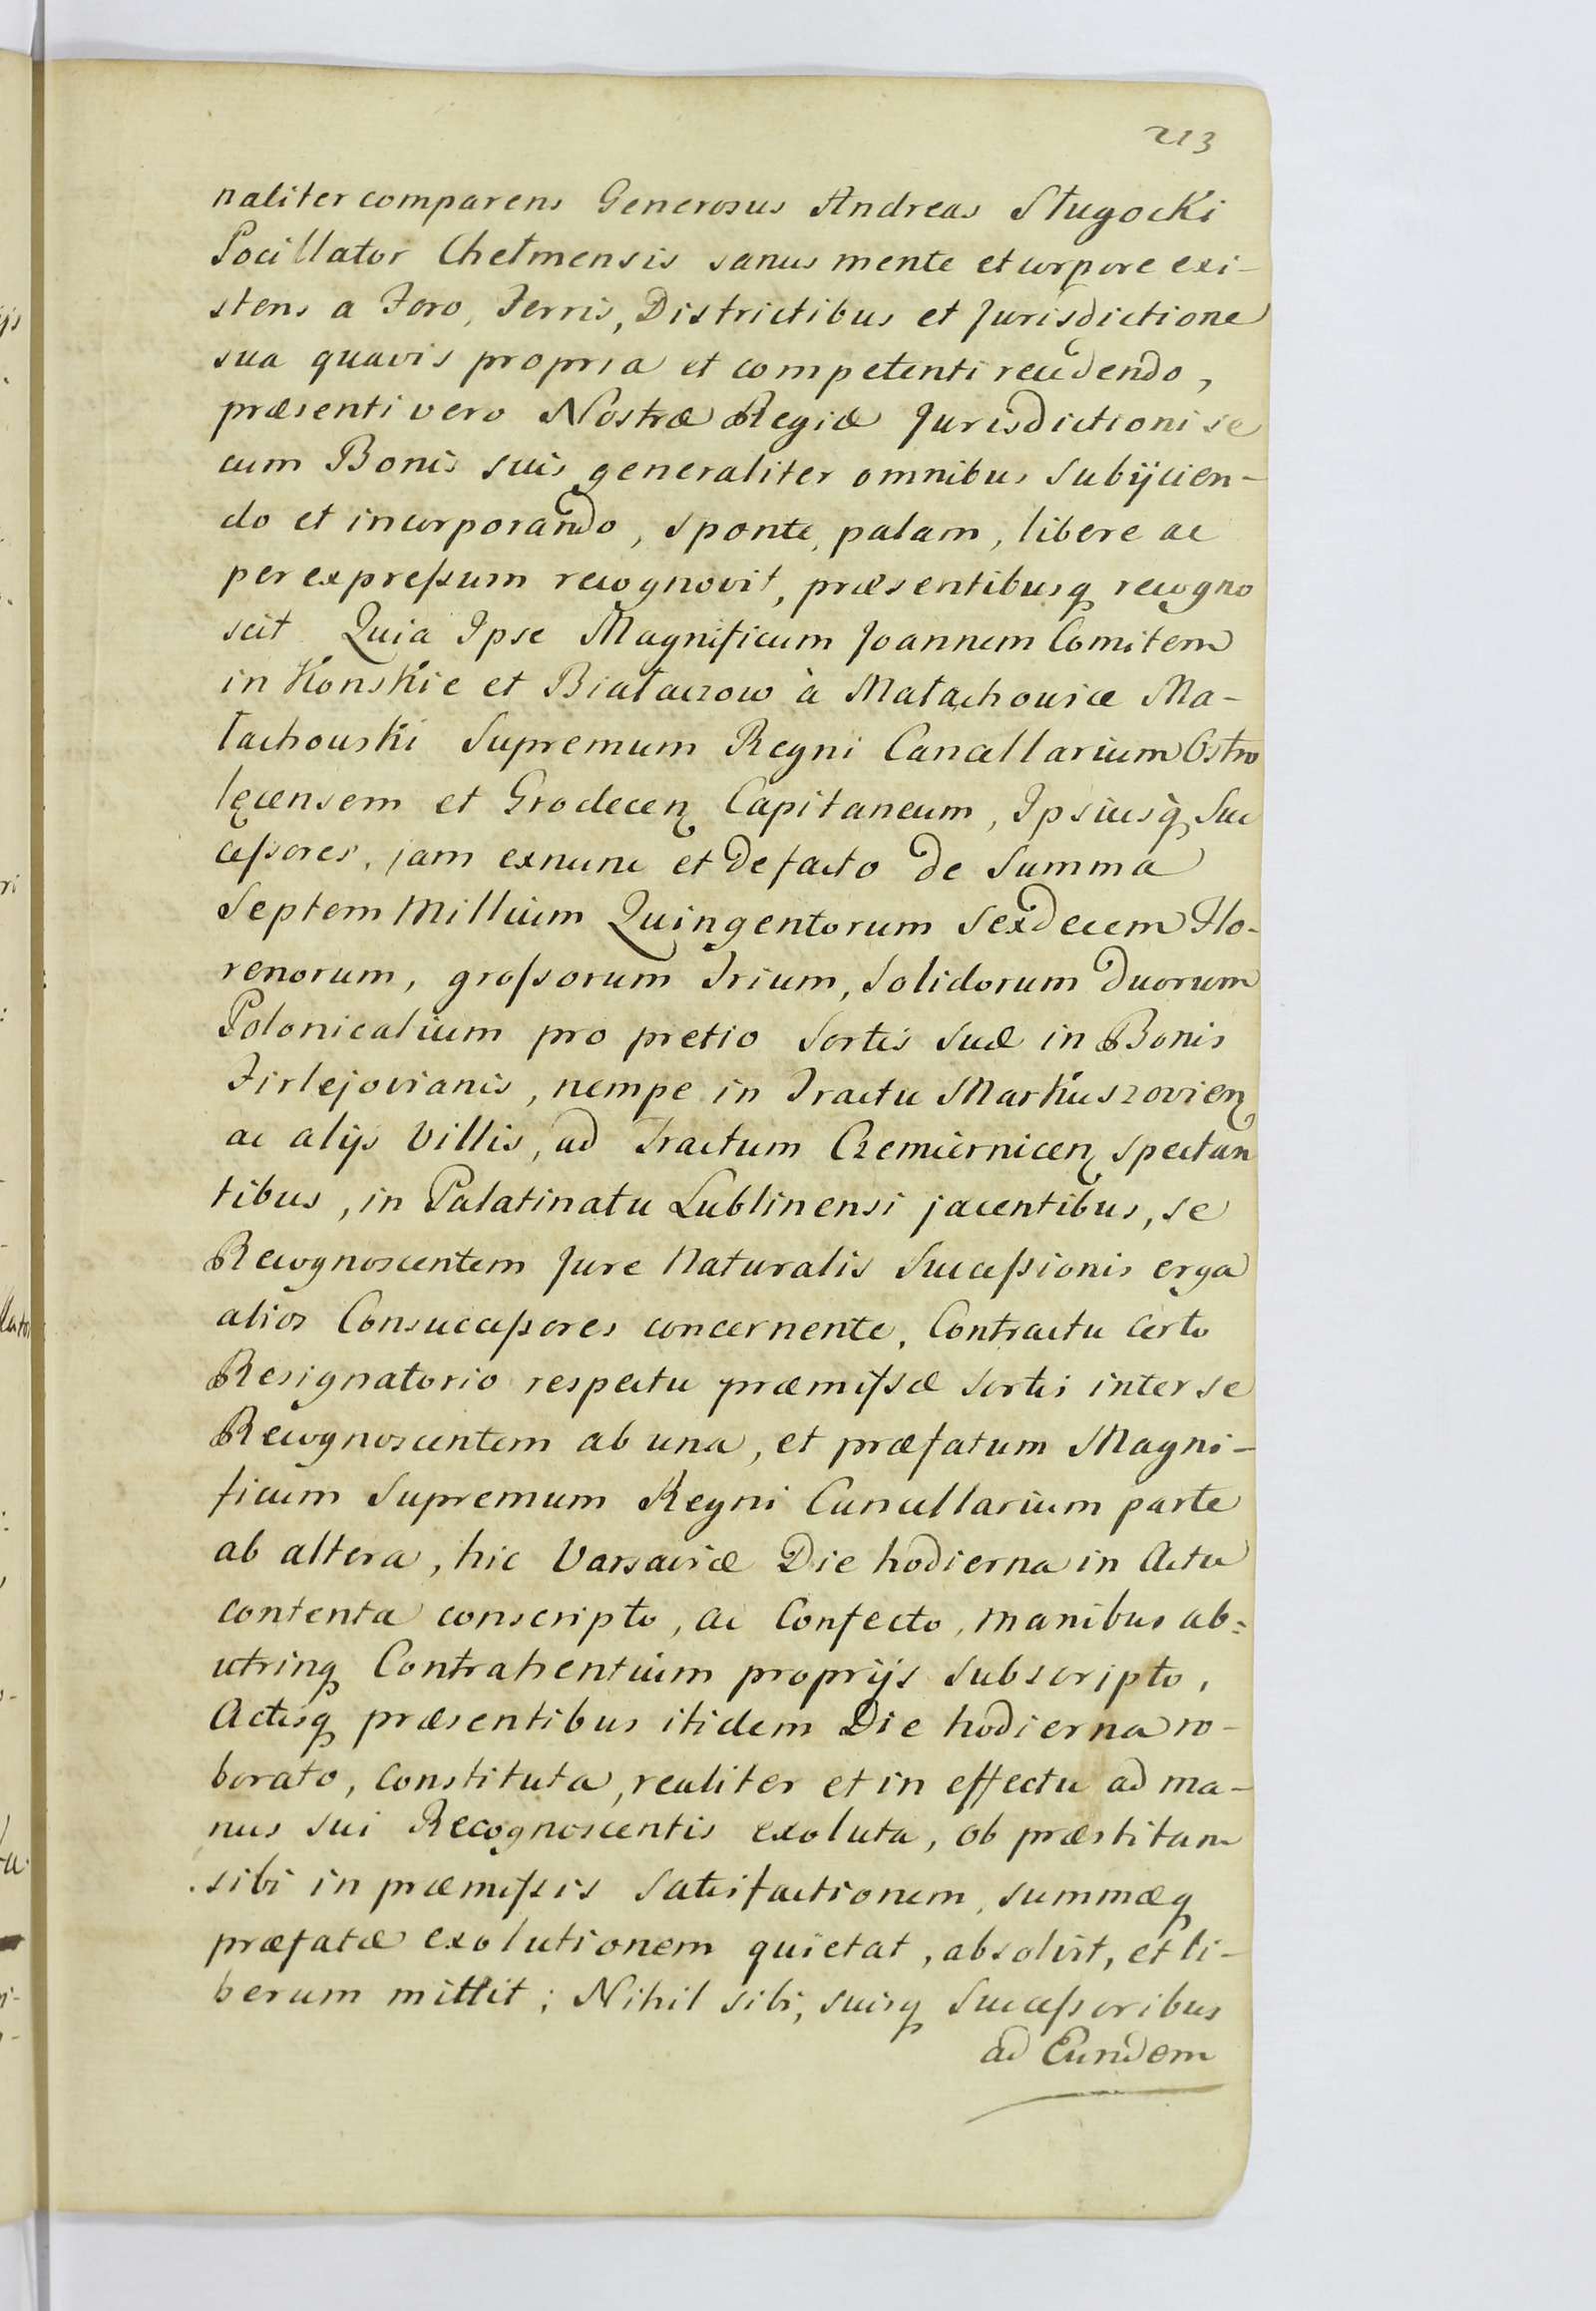 213
naliter comparens Generosus Andreas Sługocki
Pocillator Chełmensis sanus mente et corpore exi-
stens a Foro, Terris, Districtibus et Jurisdictione
sua quavis propria et competenti recedendo,
præsenti vero Nostræ Regiæ Jurisdictioni se
cum Bonis suis generaliter omnibus Subijcien-
do et incorporando, sponte, palam, libere ac
per expressum recognovit, præsentibusq recogno
scit Quia Ipse Magnificum Joannem Comitem
in Konskie et Białaczow à Małachowice Ma-
łachowski Supremum Regni Cancellarium Ostro
lęcensem et Grodecen Capitaneum, Ipsiusq Suc
cessores, jam exnunc et defacto de Summa
Septem Millium Quingentorum Sexdecem Flo-
renorum, grossorum Trium, Solidorum duorum
Polonicalium pro pretio Sortis Suæ in Bonis
Firlejovianis, nempe in Tractu Markuszovien
ac alijs Villis, ad Tractum Czemiernicen spectan
tibus, in Palatinatu Lublinensi jacentibus, se
Recognoscentem Jure Naturalis Successionis erga
alios Consuccessores concernente, Contractu Certo
Resignatorio respectu præmissæ Sortis inter se
Recognoscentem ab una, et præfatum Magni-
ficum Supremum Regni Cancellarium parte
ab altera, hic Varsaviæ Die hodierna in Actu
contenta conscripto, ac Confecto, manibus ab=
utrinq Contrahentium proprijs Subscripto,
Actisq præsentibus itidem Die hodierna ro-
borato, Constituta, realiter et in effectu ad ma-
nus sui Recognoscentis exoluta, ob præstitam
sibi in præmissis Satisfactionem, summæq
præfatæ exolutionem quietat, absolvit, et li-
berum mittit; Nihil sibi, suisq Successoribus
ad Eundem